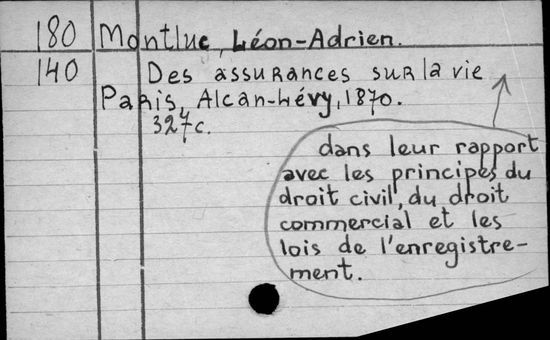 180 Montluc, Léon-Adrien.
140 Des assurances sur la vie
Paris, Alcan-Lévy, 1870.
327 c.
dans leur rapport
avec les principes du
droit civil, du droit
commercial et les
lois de l'enregistre-
ment.